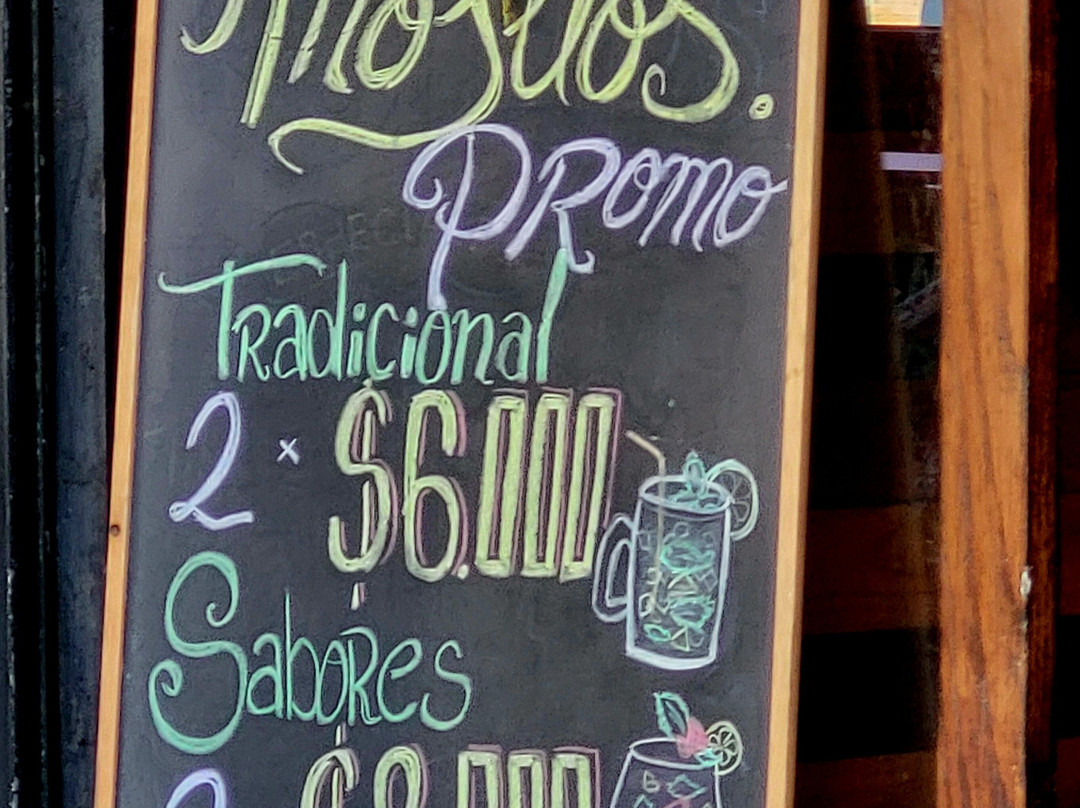 Mojitos.
PROMO
Tradicional
2 x $6.000
Sabores